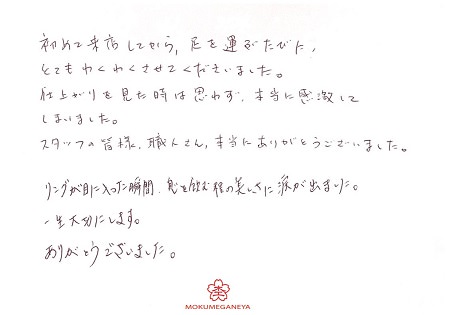 初めて来店してから、足を運ぶたびに、
とてもわくわくさせてくださいました。
仕上がりを見た時は思わず、本当に感激して
しまいました。
スタッフの皆様、職人さん、本当にありがとうございました。
リングが目に入った瞬間、息を飲む程の美しさに涙が出ました。
一生大切にします。
ありがとうございました。
MOKUMEGANEYA